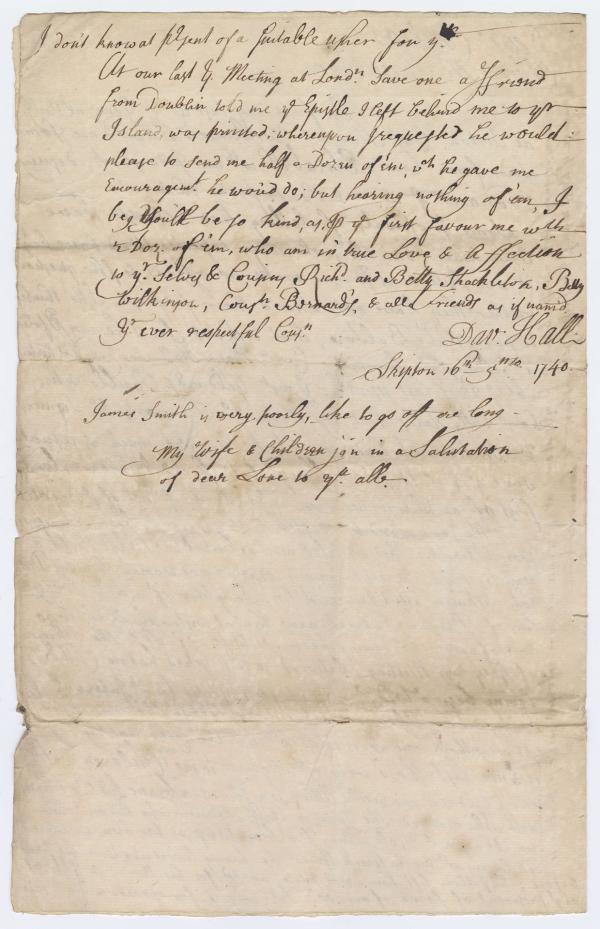 I don't know at present of a suitable usher for ye
At our last Y. Meeting at Londn. save one a ffriend
from Doublin told me ye Epistle I left behind me to yr
Island, was printed; whereupon I requested he would
please to send me half a Dozen of 'em, wch he gave me
Encouragemt. he wou'd do; but hearing nothing of 'em, I
beg You'll be so kind, as, ye first favour me with
Doz. of 'em, who am in true Love & Affection
to yr. selves & Cousins Richd. and Betty Shackleton, Betty
Wilkinson, Cousn. Bernard's, & all Friends as if nam'd
Yr ever respectful Cousn.
Dav. Hall
Skipton 16th 5mo. 1740.
James Smith is very poorly, like to go off ere long
My Wife & Children join in a Salutation
of dear Love to yu. all.